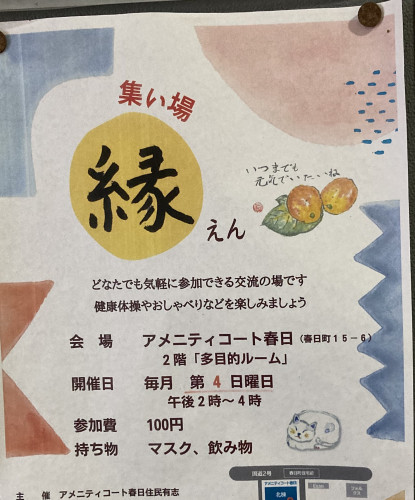 集い場
縁
えん
いつまでも
元気でいたいね
どなたでも気軽に参加できる交流の場です
健康体操やおしゃべりなどを楽しみましょう
会　場　アメニティコート春日（春日町１５－６）
２階「多目的ルーム」
開催日　毎月　第４日曜日
午後２時～４時
参加費　100円
持ち物　マスク、飲み物
主　催　アメニティコート春日住民有志
国道２号
アメニティコート春日